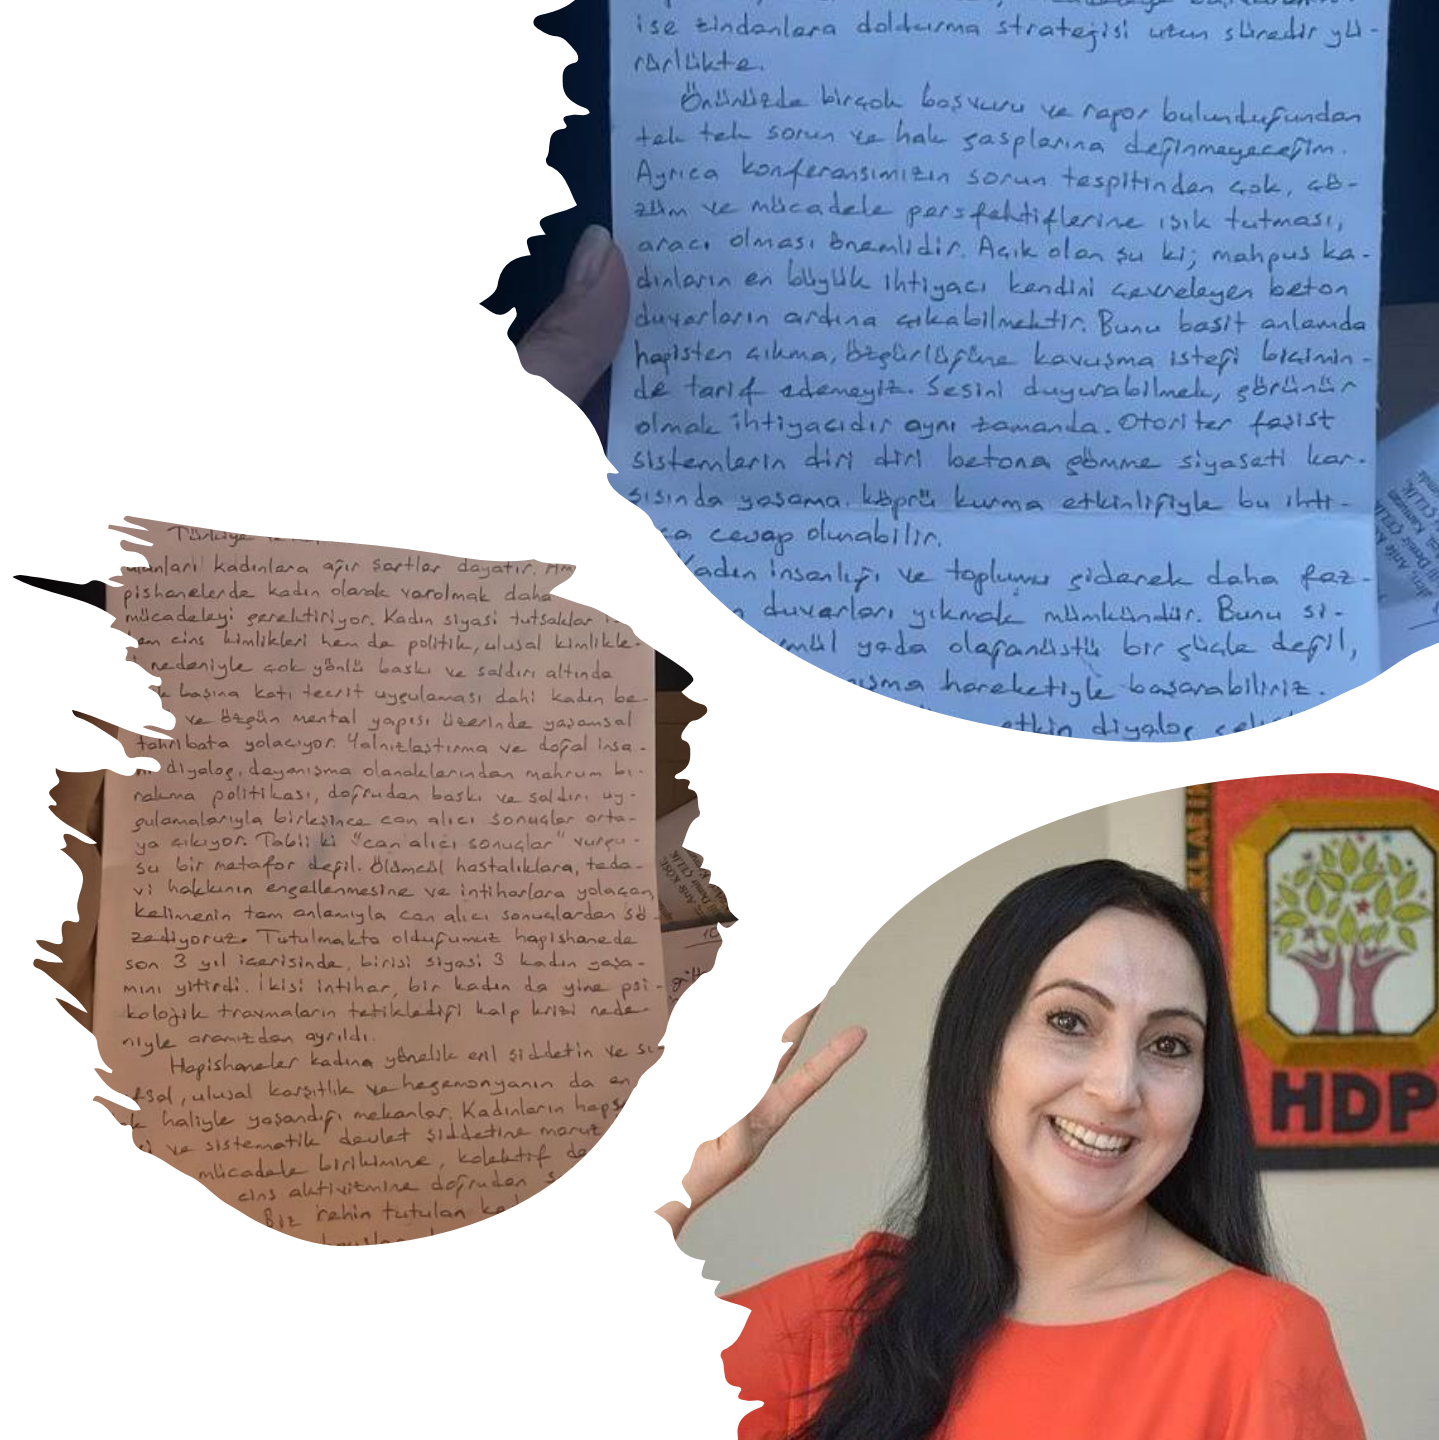 ise zindanlara doldurma stratejisi uzun süredir yü-
rürlükte.
Önünüzde birçok başvuru ve rapor bulunduğundan
tek tek sorun ve hak gasplarına değinmeyeceğim.
Ayrıca konferansımızın sorun tespitinden çok, çö-
züm ve mücadele perspektiflerine ışık tutması,
aracı olması önemlidir. Açık olan şu ki; mahpus ka-
dınların en büyük ihtiyacı kendini çevreleyen beton
duvarların ardına çıkabilmektir. Bunu basit anlamda
hapisten çıkma, özgürlüğüne kavuşma isteği biçimin-
de tarif edemeyiz. Sesini duyurabilmek, görünür
olmak ihtiyacıdır aynı zamanda. Otoriter faşist
sistemlerin diri diri betona gömme siyaseti kar-
şısında yaşama köprü kurma etkinliğiyle bu ihti-
ca cevap olunabilir.
Kadın insanlığı ve toplumu giderek daha faz-
duvarları yıkmak mümkündür. Bunu si-
yada olağanüstü bir güçle değil,
hareketiyle başarabiliriz.
etkin diyalog
Türkiye
kadınlara ağır şartlar dayatır.
pishanelerde kadın olarak varolmak daha
mücadeleyi gerektiriyor. Kadın siyasi tutsaklar
hem cins kimlikleri hem de politik, ulusal kimlikle-
nedeniyle çok yönlü baskı ve saldırı altında
başına katı tecrit uygulaması dahi kadın be-
ve özgün mental yapısı üzerinde yaşamsal
tahribata yolaçıyor. Yalnızlaştırma ve doğal insa-
ni diyalog, dayanışma olanaklarından mahrum bı-
rakma politikası, doğrudan baskı ve saldırı uy-
gulamalarıyla birleşince can alıcı sonuçlar orta-
ya çıkıyor. Tabii ki "can alıcı sonuçlar" vurgu-
su bir metafor değil. Ölümcül hastalıklara, teda-
vi hakkının engellenmesine ve intiharlara yolaçan,
kelimenin tam anlamıyla can alıcı sonuçlardan sö-
zediyoruz. Tutulmakta olduğumuz hapishanede
son 3 yıl içerisinde, birisi siyasi 3 kadın yaşa-
mını yitirdi. İkisi intihar, bir kadın da yine psi-
kolojik travmaların tetiklediği kalp krizi nede-
niyle aramızdan ayrıldı.
Hapishaneler kadına yönelik eril şiddetin ve
ulusal karşıtlık ve hegemonyanın da en
haliyle yaşandığı mekanlar. Kadınların
ve sistematik devlet şiddetine maruz
mücadele birikimine, kolektif
cins aktivizmine doğrudan
Biz rehin tutulan
HDP